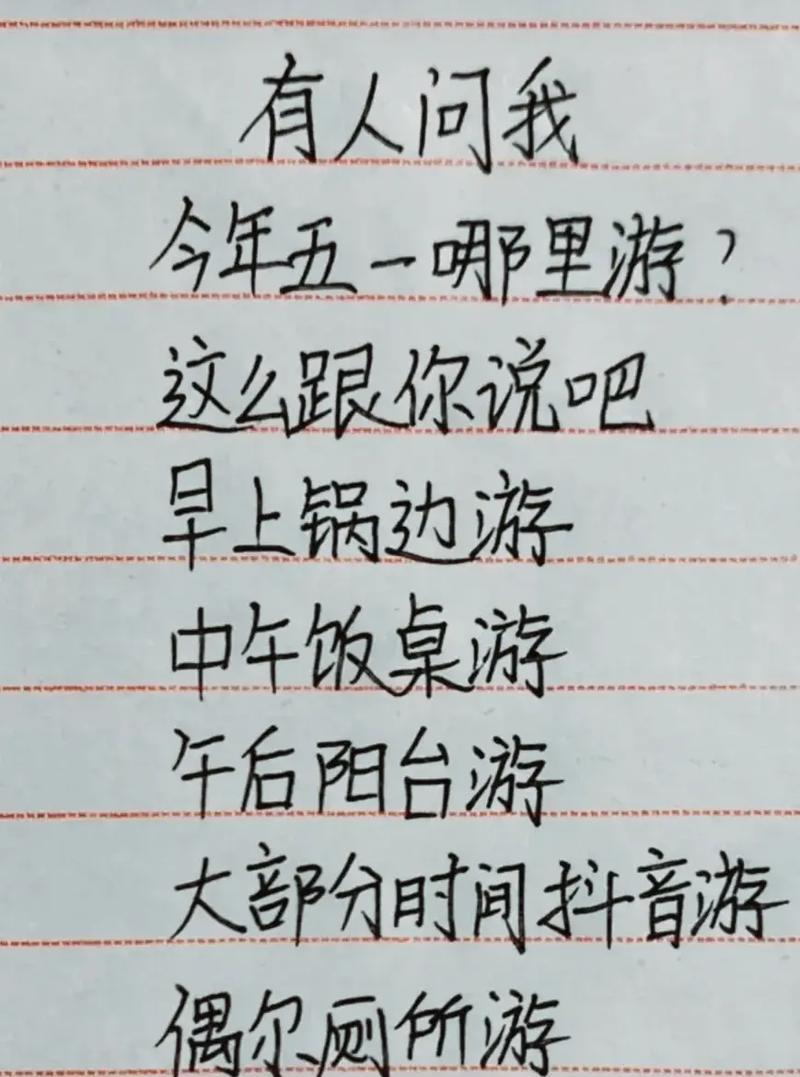 有人问我
今年五一哪里游？
这么跟你说吧
早上锅边游
中午饭桌游
午后阳台游
大部分时间抖音游
偶尔厕所游